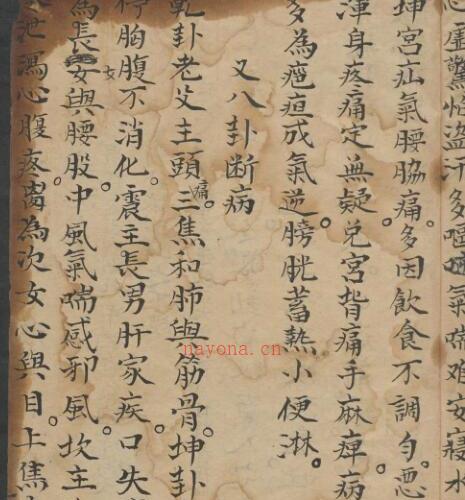 心虛驚怕盜汗多嘔氣喘难安寢水
坤宮疝氣腰脇痛。多因飲食不調勻。悪
渾身疼痛定無疑。兌宮背痛手麻痺病
多為疤疸成氣逆。膀胱蓄熱小便淋。
又八卦断病
乾卦老父主頭痛。三焦和肺與筋骨。坤卦
停胸腹不消化。震主長男肝家疾。口失
為長女與腰股。中風氣喘感邪風。坎主
泄瀉心腹疼。离為次女心與目。上焦
nayona.cn